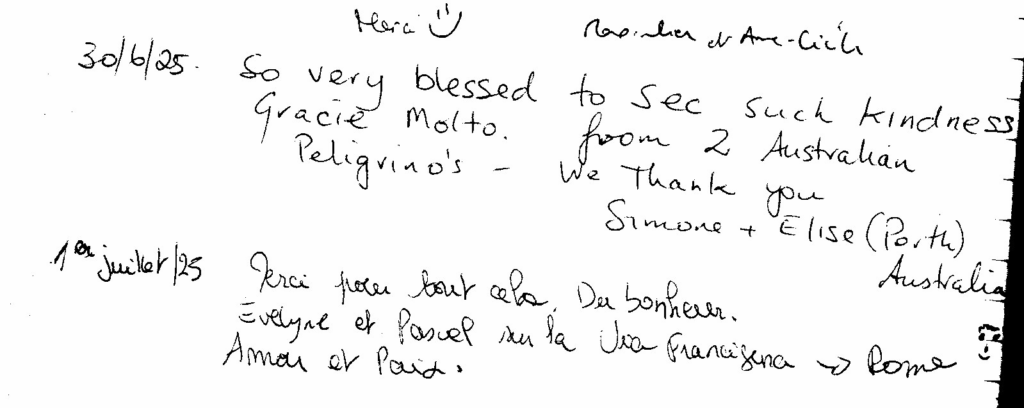 Merci
et Anne-Cécile
30/6/25. So very blessed to see such kindness
Gracie Molto. from 2 Australian
Peligrino's - We Thank you
Simone + Elise (Perth)
Australia
1er juillet/25 Merci pour tout cela. Du bonheur.
Evelyne et Pascal sur la Via Francigena → Rome
Amour et Paix.